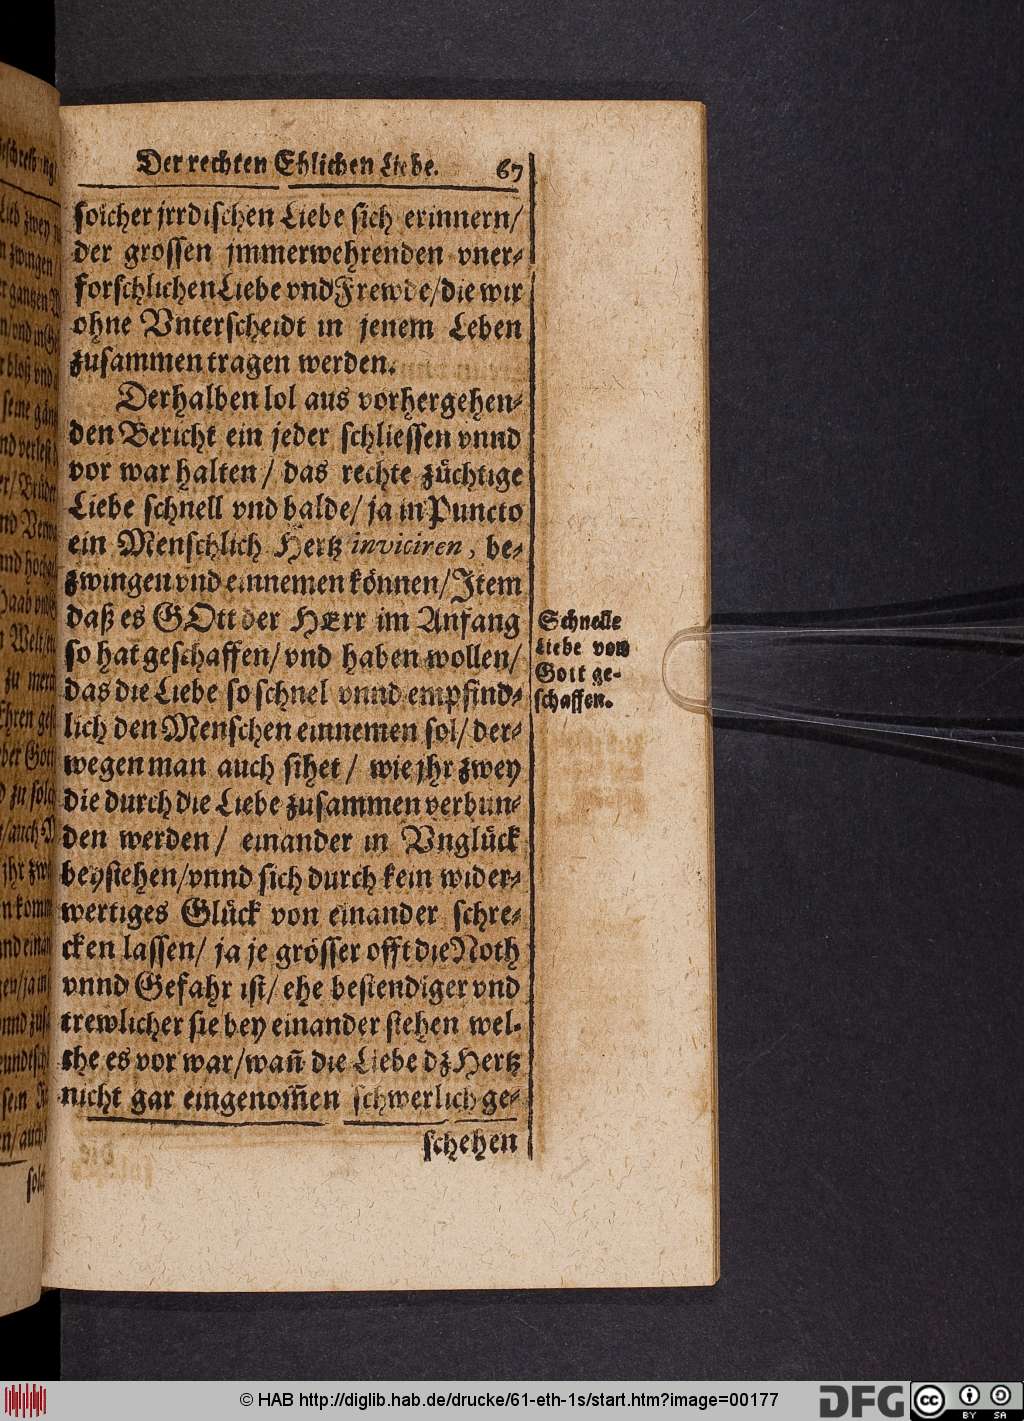 Der rechten Ehlichen Liebe. 67
solcher jrrdischen Liebe sich erinnern/
der grossen jmmerwehrenden vner-
forschlichen Liebe vnd Frewde/die wir
ohne Vnterscheidt in jenem Leben
zusammen tragen werden.
Derhalben sol aus vorhergehen-
den Bericht ein jeder schliessen vnnd
vor war halten/ das rechte züchtige
Liebe schnell vnd balde/ ja in Puncto
ein Menschlich Hertz inviciren, be-
zwingen vnd einnemen können/Item
daß es GOtt der HErr im Anfang
so hat geschaffen/ vnd haben wollen/
das die Liebe so schnel vnnd empfind-
lich den Menschen einnemen sol/ der-
wegen man auch sihet/ wie jhr zwey
die durch die Liebe zusammen verbun-
den werden/ einander in Vnglück
beystehen/vnnd sich durch kein wider-
wertiges Glück von einander schre-
cken lassen/ ja je grösser offt die Noth
vnnd Gefahr ist/ ehe bestendiger vnd
trewlicher sie bey einander stehen wel-
che es vor war/wañ die Liebe dz Hertz
nicht gar eingenom̃en schwerlich ge-
schehen
Schnelle
Liebe von
Gott ge-
schaffen.
© HAB http://diglib.hab.de/drucke/61-eth-1s/start.htm?image=00177
DFG
cc
BY SA